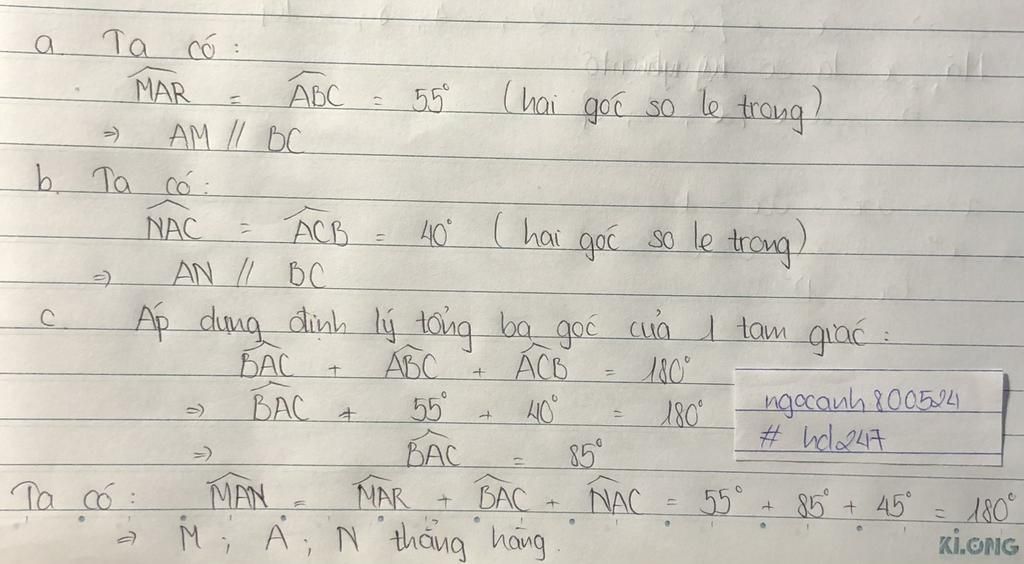 a. Ta có:
MAR = ABC = 55° (hai góc so le trong)
⇒ AM // BC
b. Ta có:
NAC = ACB = 40° (hai góc so le trong)
⇒ AN // BC
c. Áp dụng định lý tổng ba góc của 1 tam giác:
BAC + ABC + ACB = 180°
⇒ BAC + 55° + 40° = 180°
⇒ BAC = 85°
Ta có: MAN = MAR + BAC + NAC = 55° + 85° + 45° = 180°
⇒ M; A; N thẳng hàng.
ngocanh800524
# hd247
KI.ONG